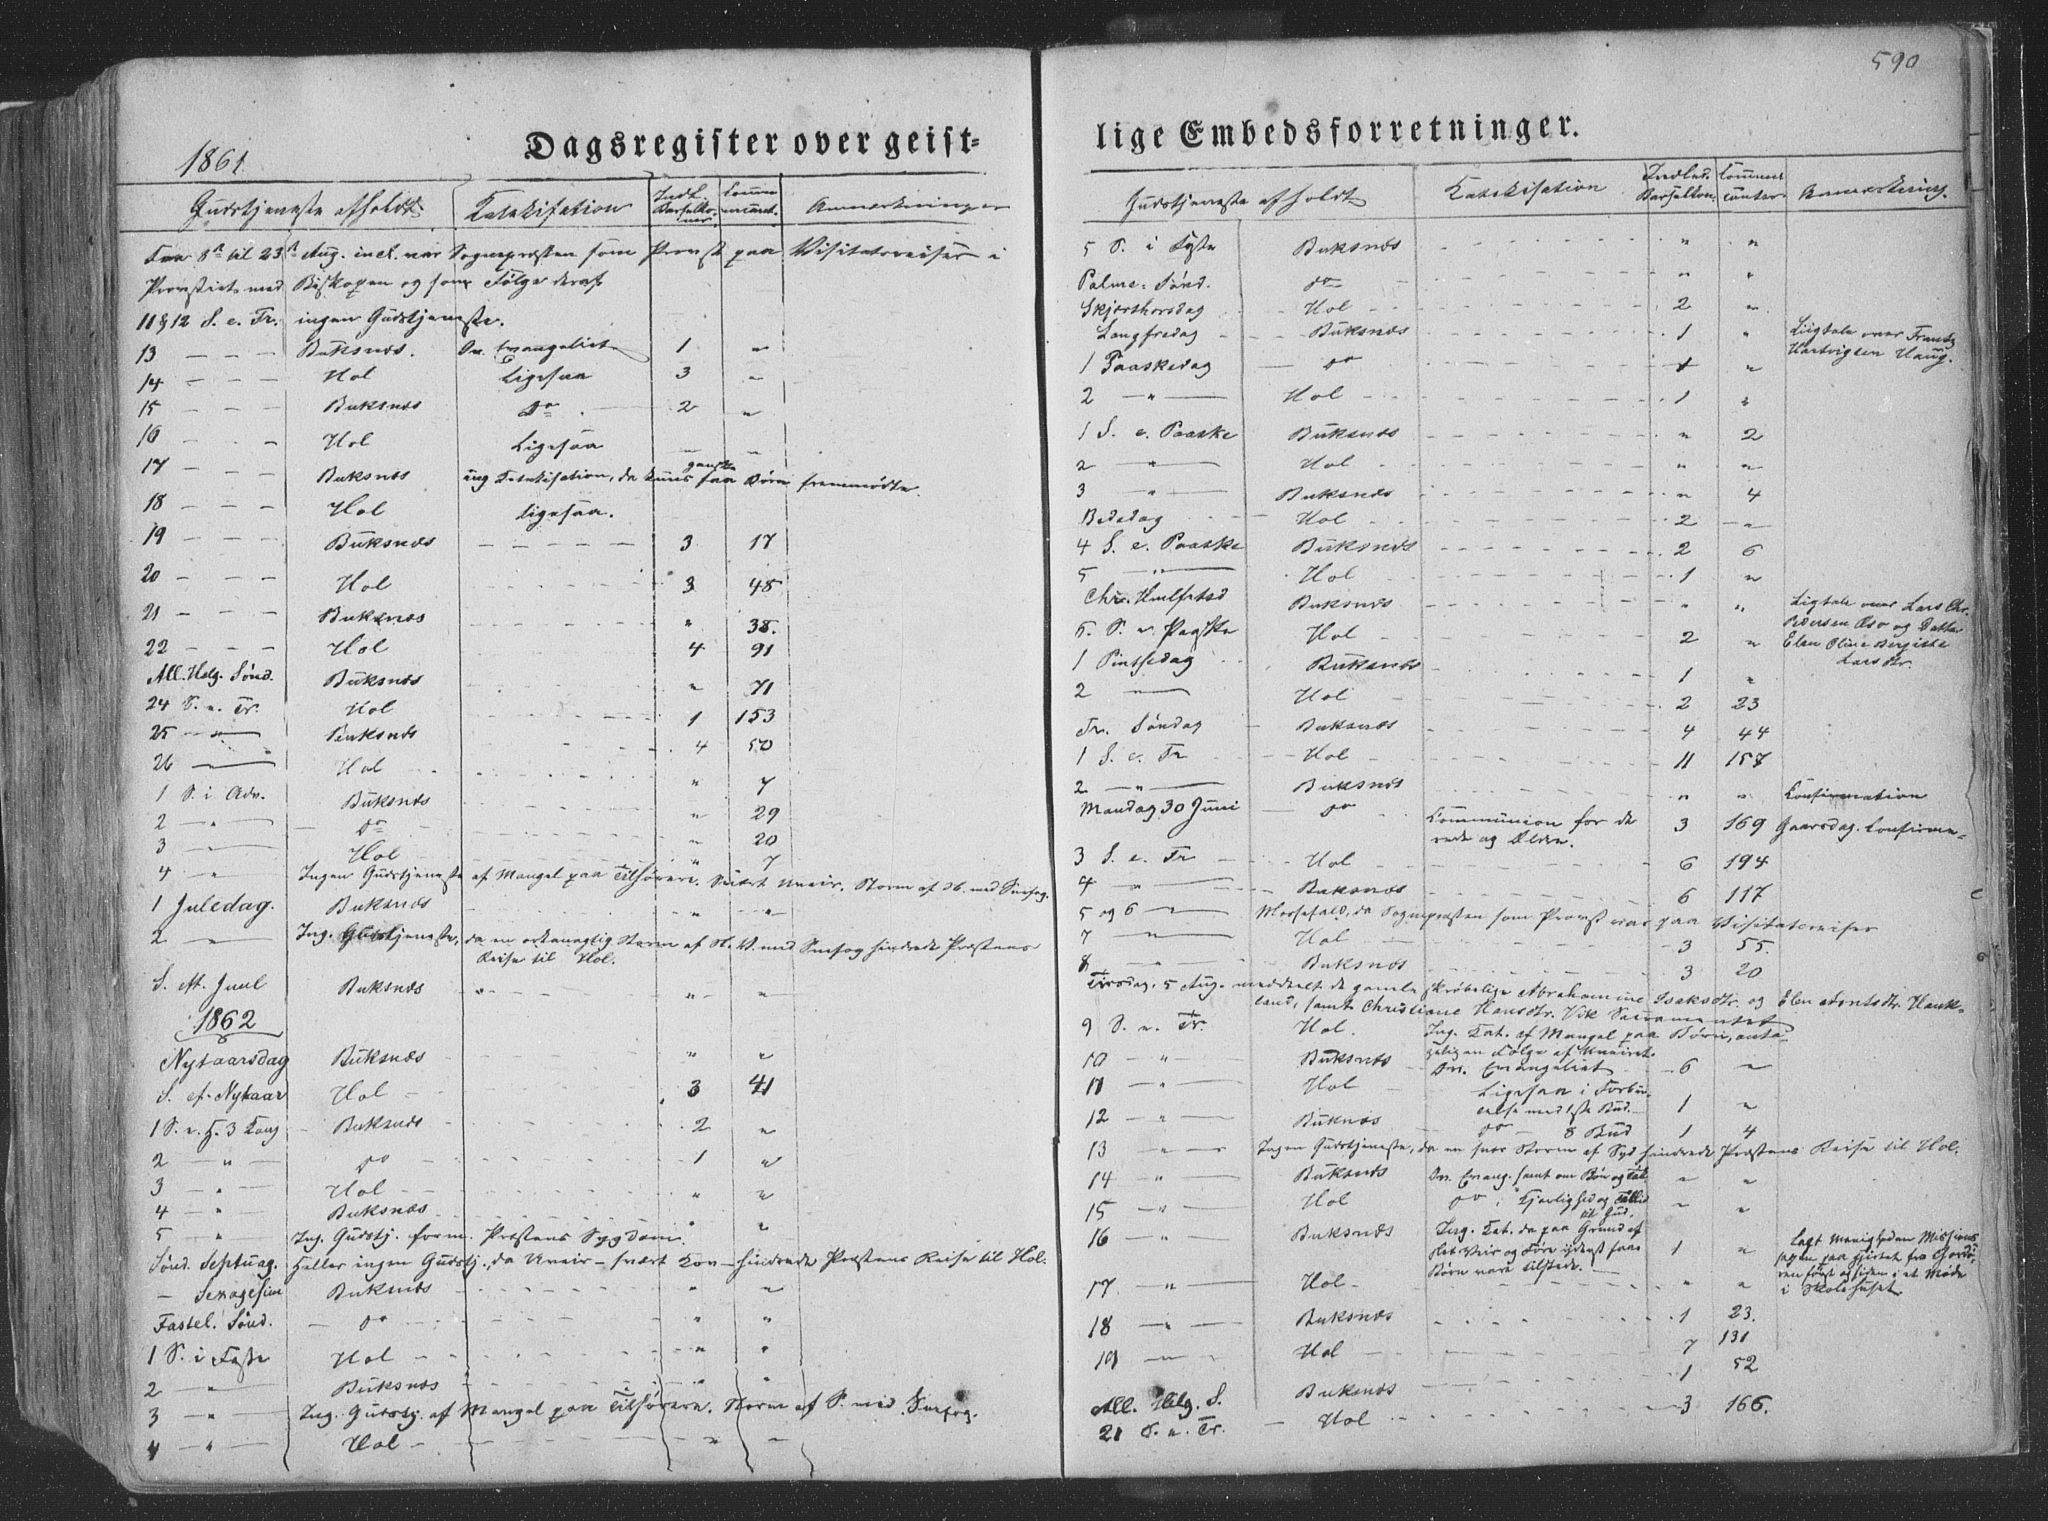 590
1861
Dagsregister over geist-
Gudstjeneste afholdt Katekisation Indl. Barselko- ner Commu- nicant. Anmærkninger
Fra 8de til 23de Aug. incl. var Sognepræsten som Provst paa Visitatsreiser i
Provstiet med Biskopen og som Følge deraf
11 & 12 S. e. Tr. ingen Gudstjeneste.
13 — — — Buksnæs. Ov. Evangeliet 1 "
14 — — — Hol Ligesaa 3 "
15 — — — Buksnæs do 2 "
16 — — Hol Ligesaa " "
17 — — — Buksnæs ing Katekisation, da kuns ganske faa Børn fremmødte.
18 — — Hol Ligesaa.
19 — — — Buksnæs 3 17
20 — — — Hol 3 48
21 — — — Buksnæs " 38.
22 — — — Hol 4 91
All. Helg. Sønd. Buksnæs " 71
24 S. e. Tr. Hol 1 153
25 — " — Buksnæs 4 50
26 — Hol " 7
1 S. i Adv. Buksnæs " 29
2 — " — do " 20
3 — " — Hol " 7
4 " Ingen Gudstjeneste af Mangel paa Tilhørere. Svært Uveir, Storm af med Snefog.
1 Juledag. Buksnæs " "
2 — " — Ing. Gudstjeneste, da en Storm af N. V. med Snefog hindrede Præstens
Reise til Hol.
S. ef. Juul Buksnæs " "
1862
Nytaarsdag Buksnæs " "
S. ef. Nytaar Hol 3 41
1 S. e. H. 3 Kong Buksnæs 2 "
2 — " — do 1 "
3 — " — Hol " "
4 — " Buksnæs
5 — " Ing. Gudstj. form. Præstens Sygdom. " "
Sønd. Septuag. Heller ingen Gudstj., da Uveir – svært Kov – hindrede Præstens Reise til Hol.
— Sexagesim Buksnæs " "
Fastel. Sønd. — do " "
1 S. i Faste Hol " "
2 — " — Buksnæs " "
3 — " — Ing. Gudstj. af Mangel paa Tilhørere. Storm af S. med Snefog.
4 — " — Hol " "
lige Embedsforretninger.
Gudstjeneste afholdt Katekisation Indled. Barselkon. Commu- nicanter Anmærkning.
5 S. i Faste Buksnæs " "
Palme-Sønd. do " "
Skjærthorsdag Hol 2 "
Langfredag Buksnæs 1 " Liigtale over Frantz
Hartvigsen Haug.
1 Paaskedag do 1 "
2 — " — Hol 1 "
1 S. e. Paaske Buksnæs " 2
2 — " — Hol " "
3 — " — Buksnæs " 4
Bededag Hol 2 "
4 S. e. Paaske Buksnæs 2 6
5 — " — Hol 1 "
Chr. Himlfartsd Buksnæs " " Ligtale over Lars Chr.
Pedersen og Datter
6. S. e. Paaske Hol 2 " Elen Oline Bergitte
Larsdtr.
1 Pintsedag Buksnæs 1 "
2 — Hol 2 23
Tr. Søndag Buksnæs 4 44
1 S. e. Tr Hol 11 157
2 — " — Buksnæs " " Confirmation
Mandag 30 Juni do Communion for de 3 169 Gaarsdag. Confirme-
rede og Ældre.
3 S. e. Tr Hol 6 194
4 — " — Buksnæs 6 117
5 og 6 — Messefald, da Sognepræsten som Provst var paa Visitatsreiser
7 — Hol 3 55.
8 — " — Buksnæs 3 20
Tirsdag. 5 Aug. meddeelt de gamle skrøbelige Abrahamine Isaksdtr. og Elen Arntsdtr. Hauk-
land, samt Christiane Hansdtr. Vik Sacramentet
9 S. e. Tr. Hol. Ing. Kat. af Mangel paa Børn, anta-
gelig en Følge af Uveiret.
10 — " — Buksnæs Ov. Evangeliet 6 "
11 — " — Hol Ligesaa i Forbin-
delse med 1ste Bud. 1 "
12 — " — Buksnæs do — 8 Bud 1 4
13 — " — Ingen Gudstjeneste, da en svær Storm af Syd hindrede Præstens Reise til Hol.
14 — " — Buksnæs Ov. Evang. samt om Bøn og " "
15 — " — Hol do Kjerlighed og Tillid " "
til Gud.
16 — " — Buksnæs Ing. Kat. da paa Grund af 1 " Lagt Menigheden Missions
slet Veir og Føre faa sagen paa Hjertet fra
Børn vare tilstede. først og siden i et Møde
i Skolehuset
17 — " — Hol " "
18 — " — Buksnæs 1 23.
19 — Hol 7 131
All. Helg. S. Buksnæs 1 52
21 S. e. Tr. Hol 3 166.